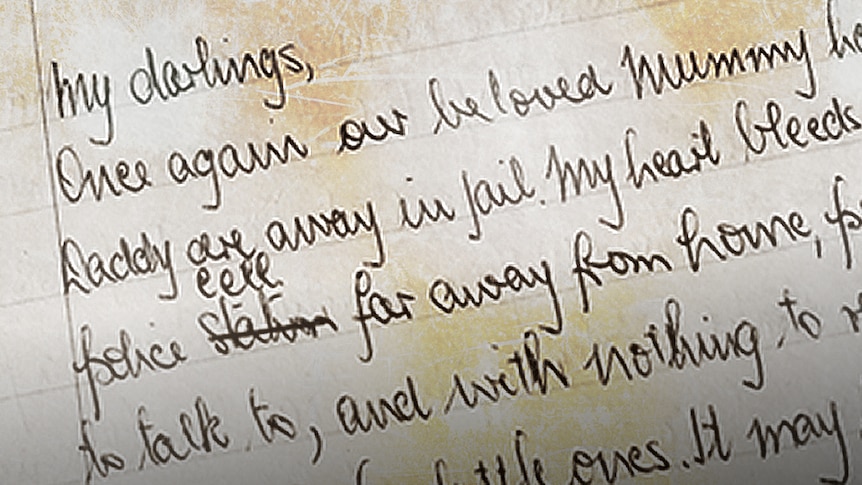 My darlings,
Once again our beloved Mummy
Daddy are away in jail. My heart bleeds
cell
police station far away from home,
to talk to, and with nothing to
little ones. It may